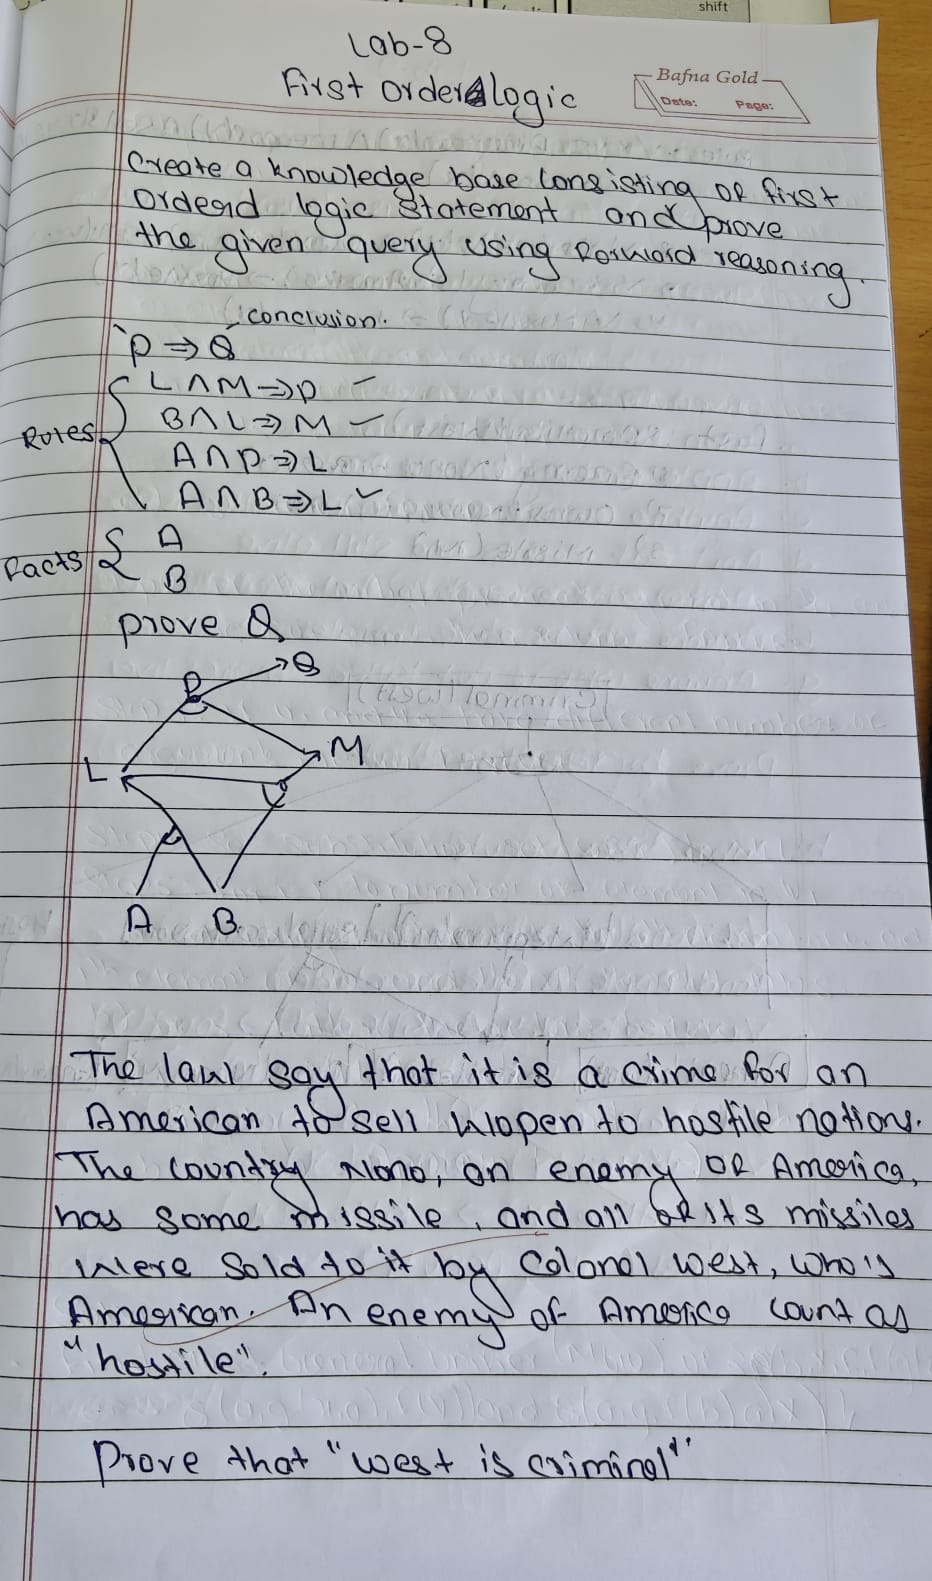 shift
Lab-8
First Order logic
Bafna Gold
Date: Page:
Create a knowledge base consisting of first
orderd logic statement and prove
the given query using Forword reasoning.
conclusion.
P ⇒ Q
L ∧ M ⇒ P
B ∧ L ⇒ M ✓
Rules
A ∧ P ⇒ L
A ∧ B ⇒ L ✓
A
Facts
B
prove Q
Q
P
M
L
A B
The law say that it is a crime for an
American to sell wlopen to hostile nations.
The country Nono, an enemy of America,
has some missile, and all of its missiles
were sold to it by Colonel west, who is
American. An enemy of America count as
"hostile".
Prove that "west is criminal"